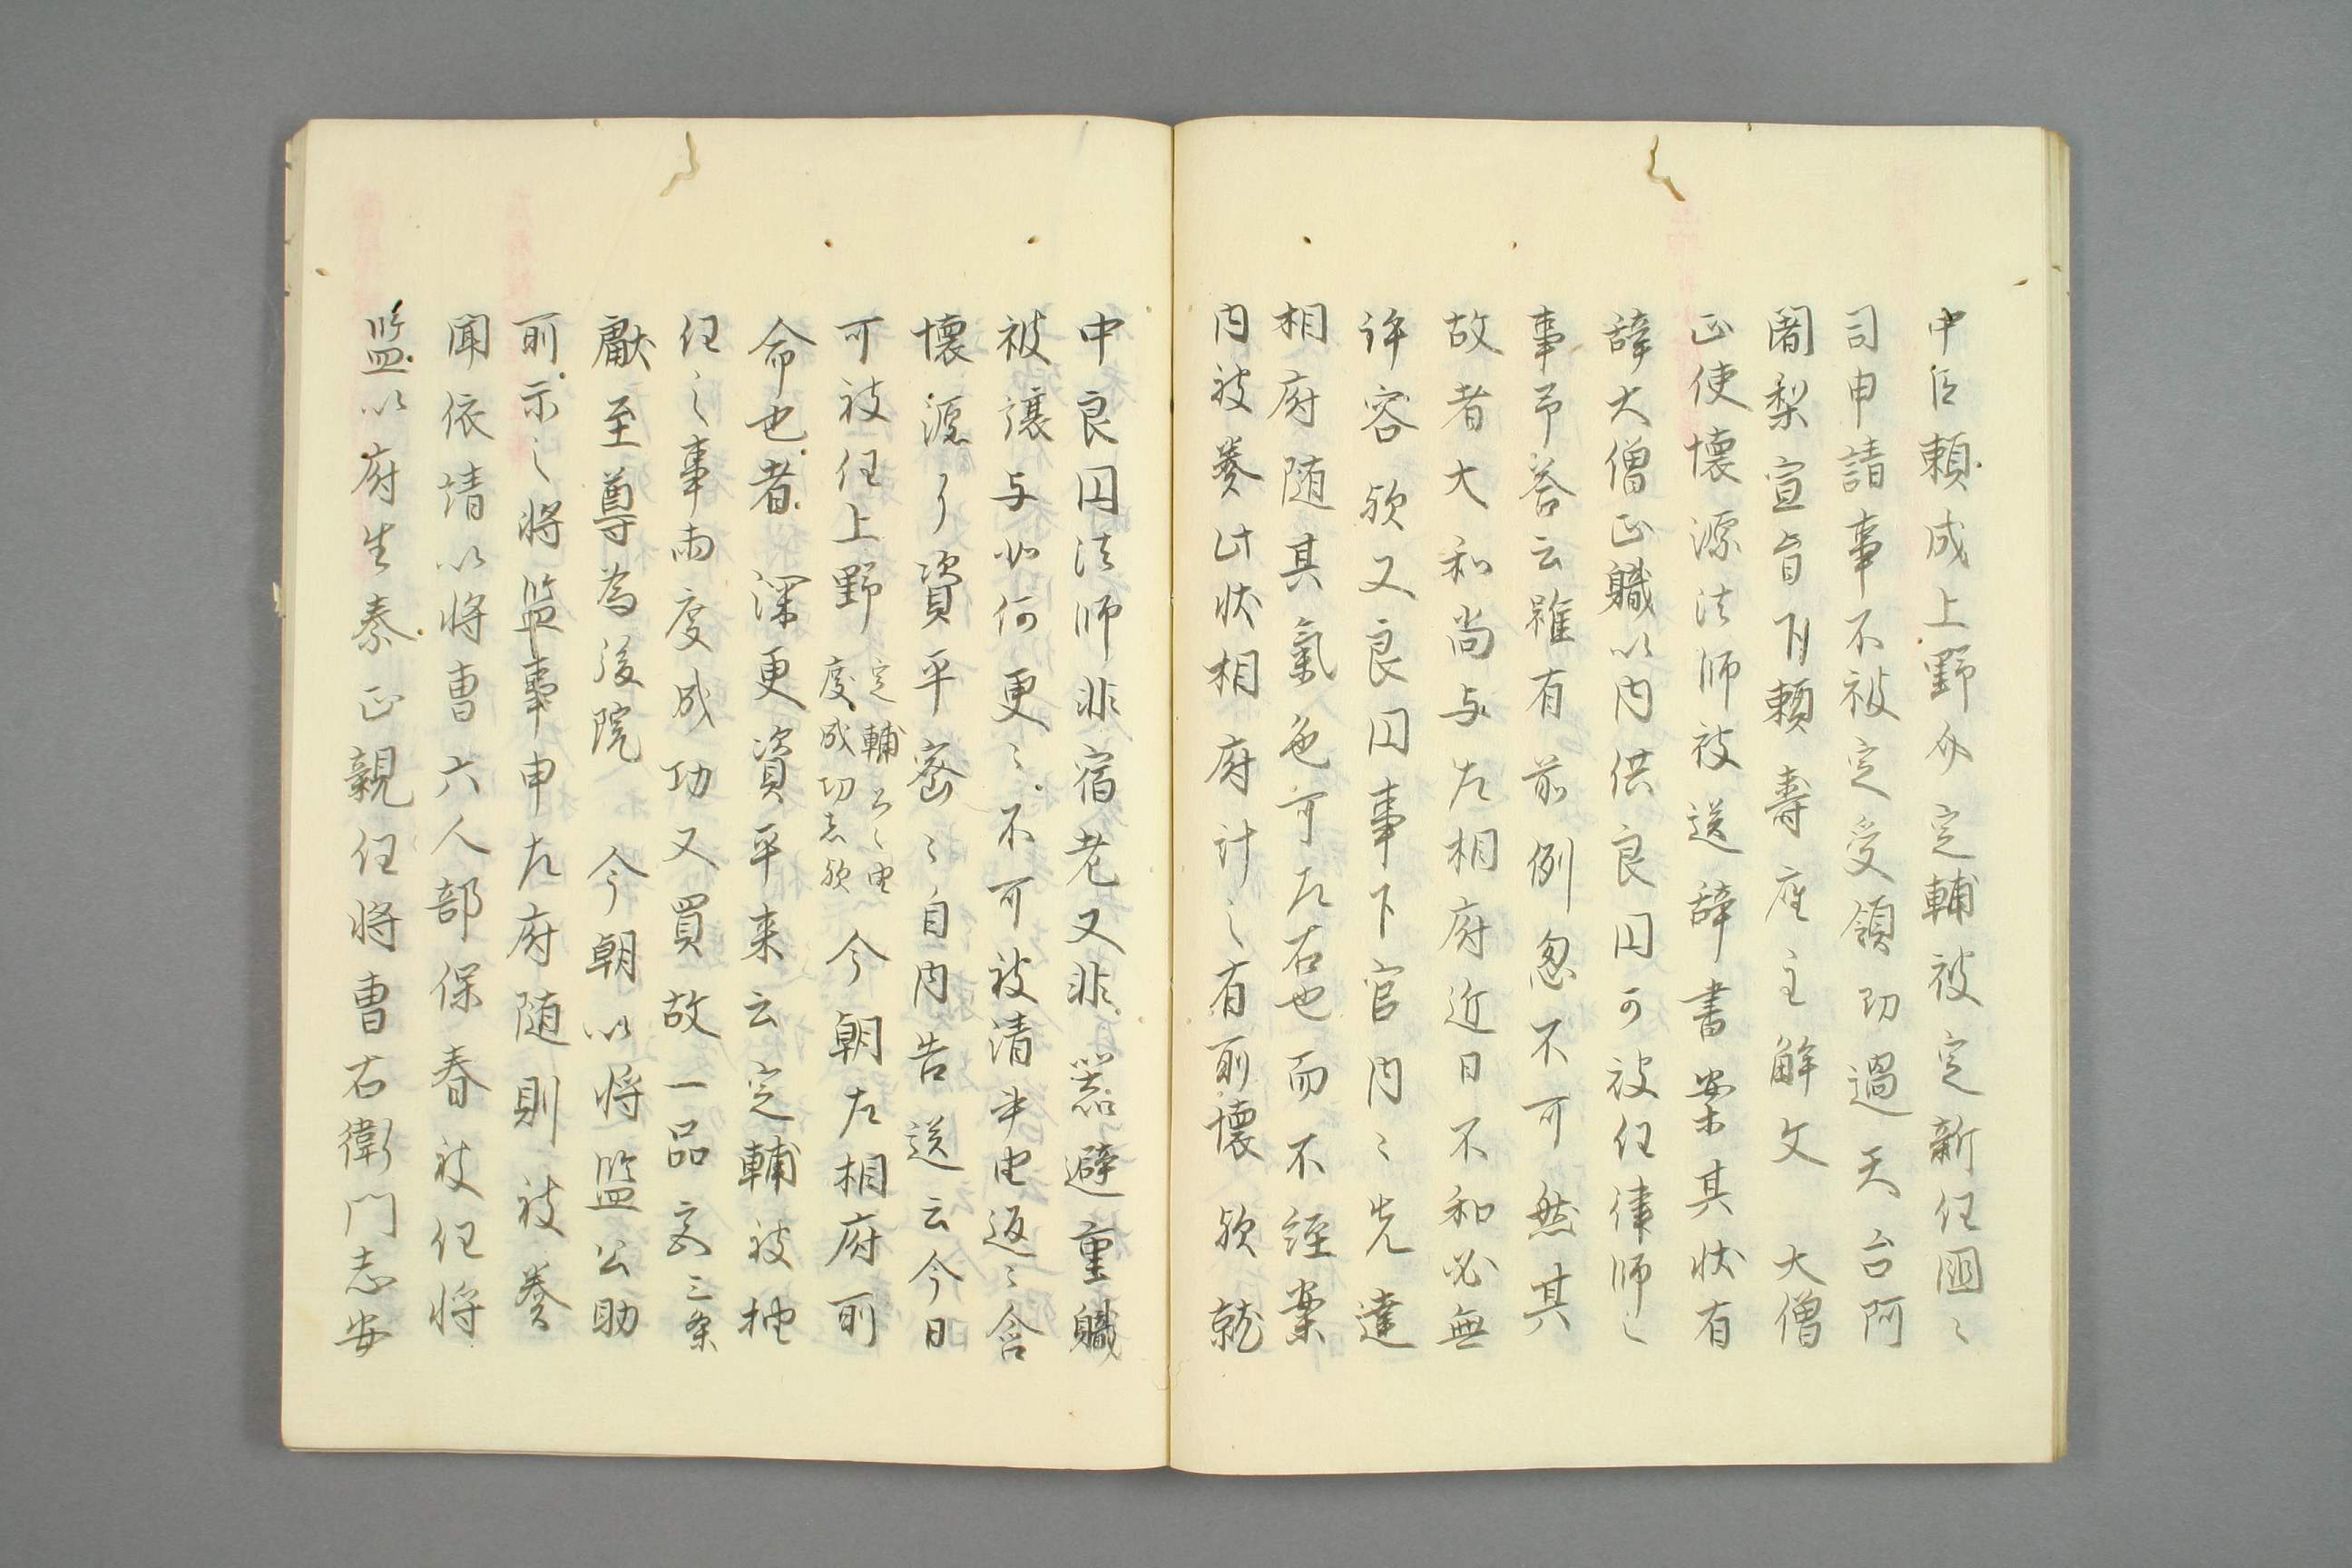 中臣頼成上野介定輔被定新任國々
司申請事不被定受領功過天台阿
闍梨宣旨下頼壽座主解文　大僧
正使懐源法師被送辞書案其状有
辞大僧正職以内供良円可被任律師之
事予答云雖有前例忽不可然其
故者大和尚与左相府近日不和必無
許容欤又良円事下官内々先達
相府随其氣色可左右也而不經案
内被奏此状相府計之有所懐欤就
中良円法師非宿老又非器避重職
被譲与如何更々不可被清車由返々含
懐源了資平密々自内告送云今日
可被任上野定輔云々由度成功志欤今朝左相府所
命也者深更資平来云定輔被抽
任之事両度成功又買故一品宮三条
獻至尊為後院　今朝以将監公助
所示之将監事申左府随則被奏
聞依請以将曹六人部保春被任将
監以府生秦正親任将曹右衛門志安